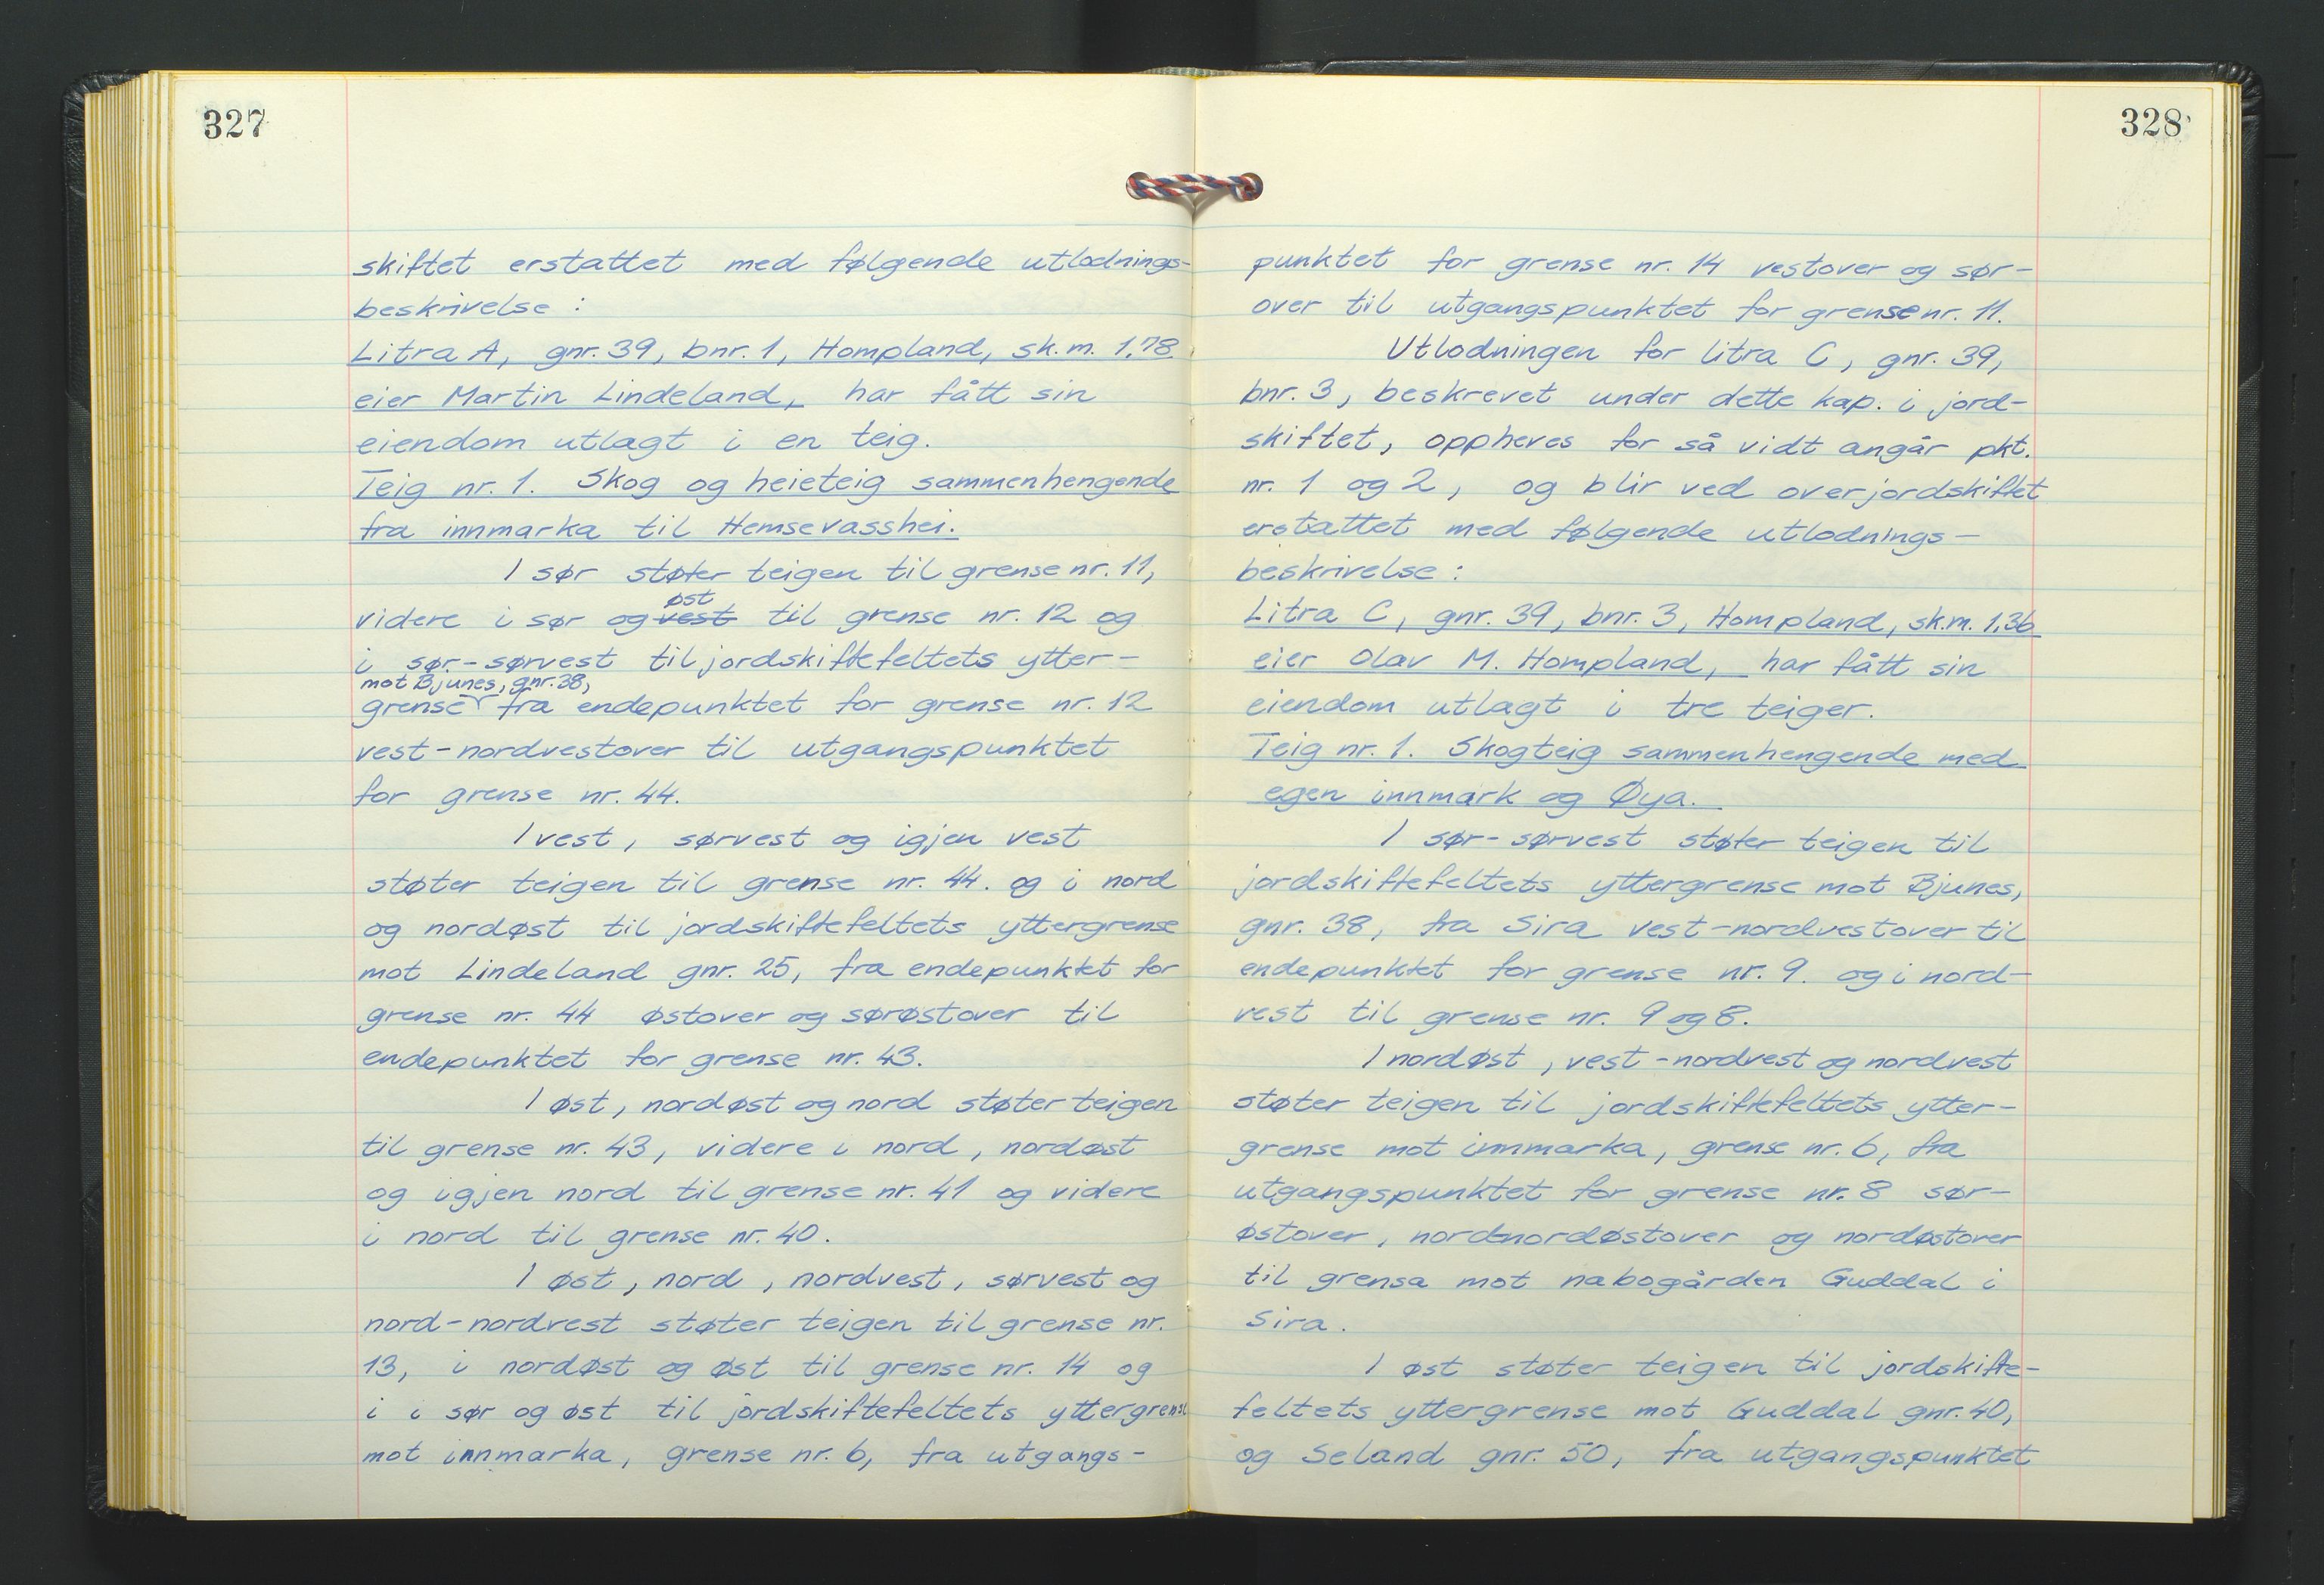 327
skiftet erstattet med følgende utlodnings-
beskrivelse :
Litra A, gnr. 39, bnr. 1, Hompland, sk.m. 1,78
eier Martin Lindeland, har fått sin
eiendom utlagt i en teig.
Teig nr. 1. Skog og heieteig sammenhengende
fra innmarka til Hemsevasshei.
I sør støter teigen til grense nr. 11,
øst
videre i sør og vest til grense nr. 12 og
i sør-sørvest til jordskiftefeltets ytter-
mot Bjunes, gnr. 38,
grense fra endepunktet for grense nr. 12
vest-nordvestover til utgangspunktet
for grense nr. 44.
I vest, sørvest og igjen vest
støter teigen til grense nr. 44. og i nord
og nordøst til jordskiftefeltets yttergrense
mot Lindeland gnr. 25, fra endepunktet for
grense nr. 44 østover og sørøstover til
endepunktet for grense nr. 43.
I øst, nordøst og nord støter teigen
til grense nr. 43, videre i nord, nordøst
og igjen nord til grense nr. 41 og videre
i nord til grense nr. 40.
I øst, nord, nordvest, sørvest og
nord-nordvest støter teigen til grense nr.
13, i nordøst og øst til grense nr. 14 og
i i sør og øst til jordskiftefeltets yttergrense
mot innmarka, grense nr. 6, fra utgangs-
328
punktet for grense nr. 14 vestover og sør-
over til utgangspunktet for grense nr. 11.
Utlodningen for litra C, gnr. 39,
bnr. 3, beskrevet under dette kap. i jord-
skiftet, oppheves for så vidt angår pkt.
nr. 1 og 2, og blir ved overjordskiftet
erstattet med følgende utlodnings-
beskrivelse :
Litra C, gnr. 39, bnr. 3, Hompland, sk.m. 1,36
eier Olav M. Hompland, har fått sin
eiendom utlagt i tre teiger.
Teig nr. 1. Skogteig sammenhengende med
egen innmark og Øya.
I sør-sørvest støter teigen til
jordskiftefeltets yttergrense mot Bjunes,
gnr. 38, fra Sira vest-nordvestover til
endepunktet for grense nr. 9. og i nord-
vest til grense nr. 9 og 8.
I nordøst, vest-nordvest og nordvest
støter teigen til jordskiftefeltets ytter-
grense mot innmarka, grense nr. 6, fra
utgangspunktet for grense nr. 8 sør-
østover, nordnordøstover og nordøstover
til grensa mot nabogården Guddal i
Sira.
I øst støter teigen til jordskifte-
feltets yttergrense mot Guddal gnr. 40,
og Seland gnr. 50, fra utgangspunktet